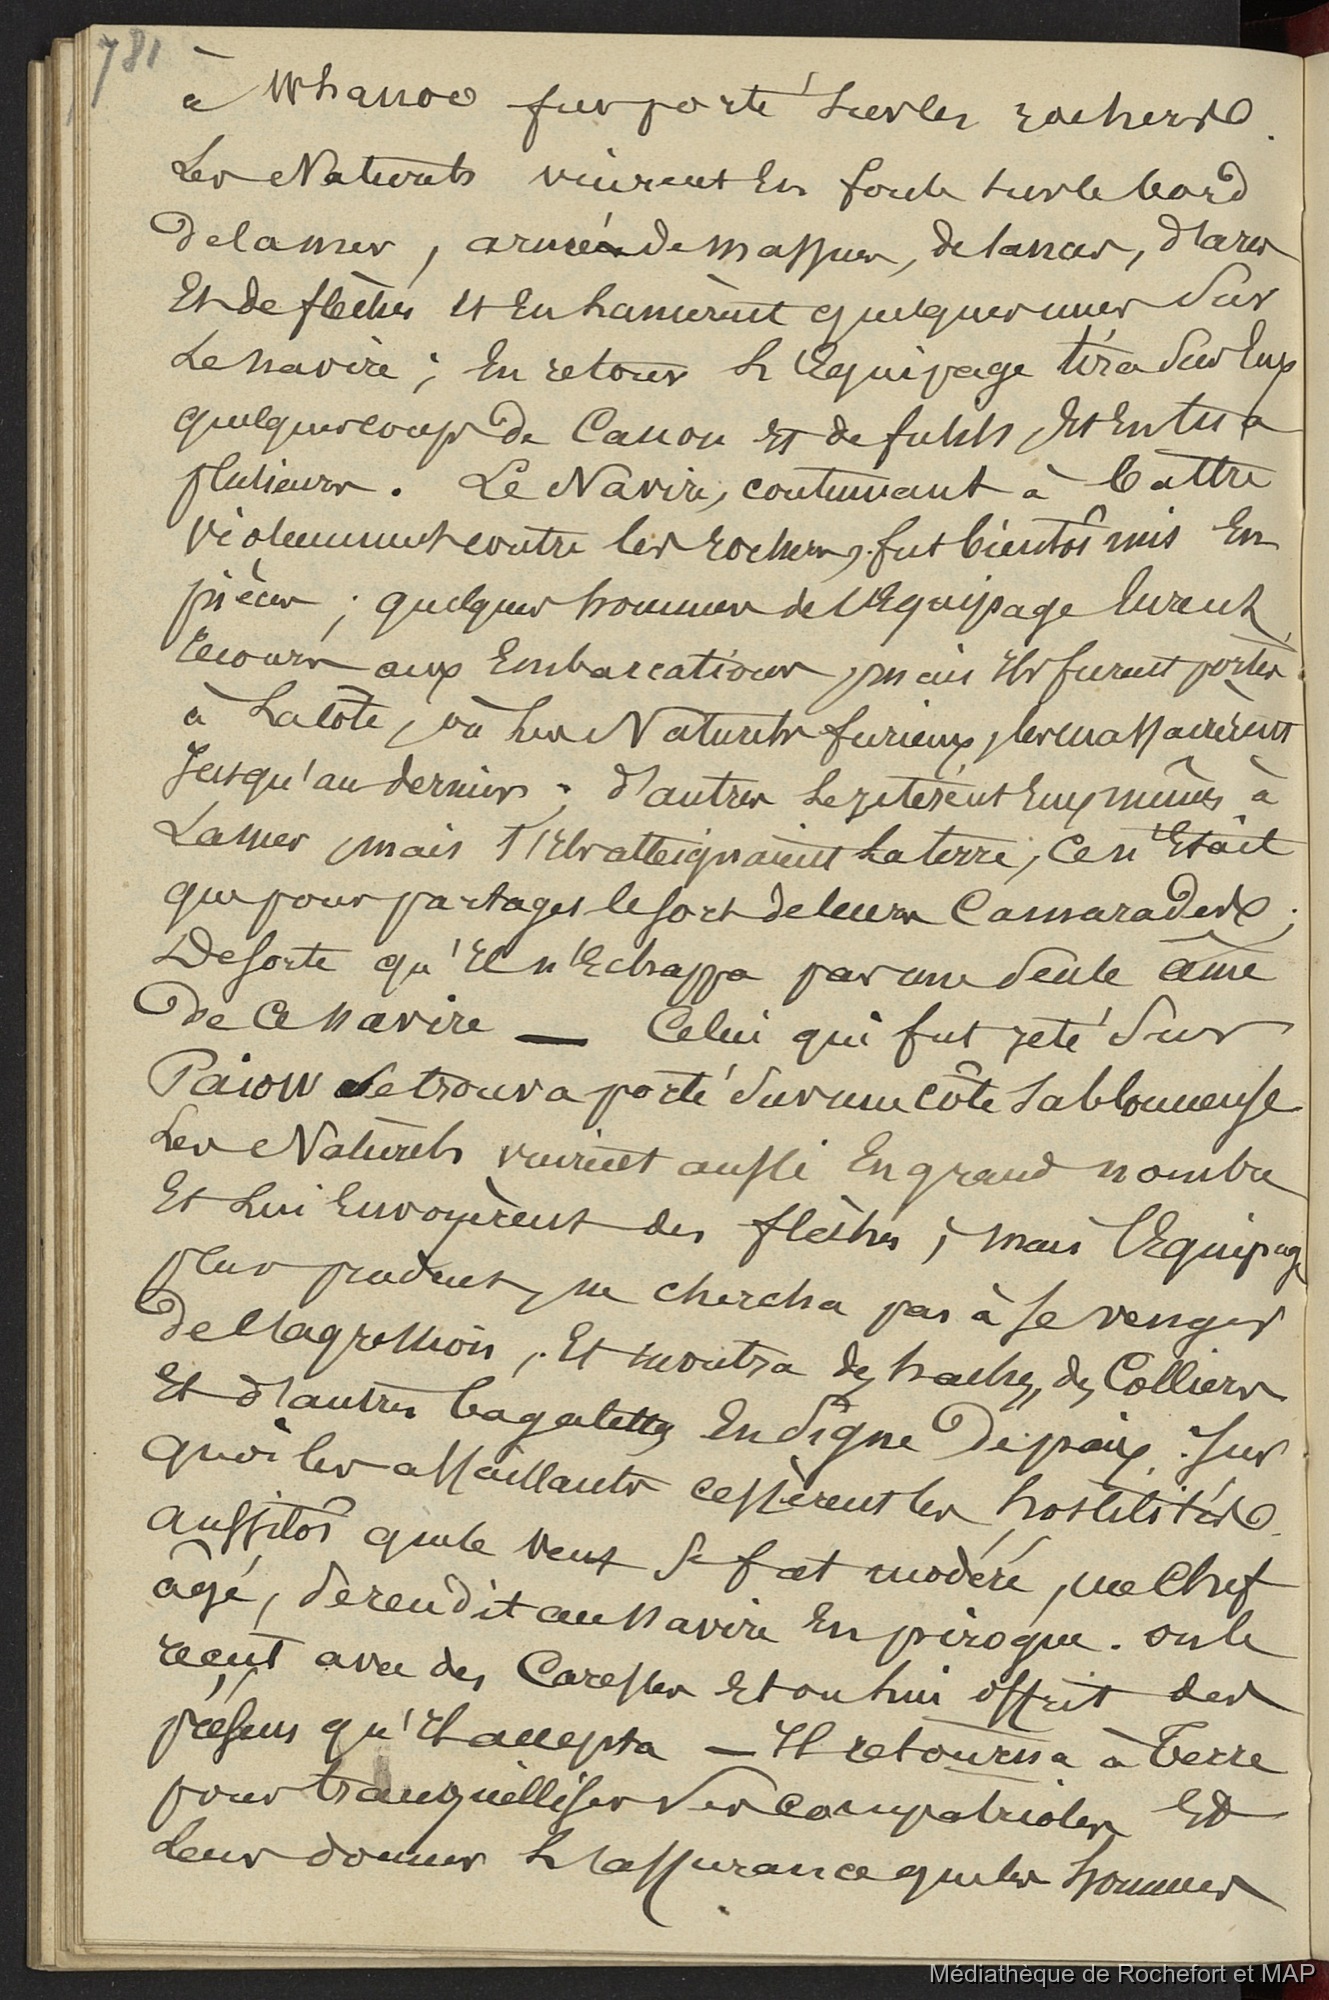 781
à Whanoo fut porté sur les rochers.
Les Naturels vinrent En foule sur le bord
de la mer, armés de massues, de lances, d'arcs
Et de flèches Et En lancèrent quelques unes Sur
Le navire ; En retour L'Equipage tira Sur Eux
quelques coups de Canon Et de fusils, Et En tua
plusieurs. Le Navire, continuant à battre
violemment contre les rochers, fut bientôt mis En
pièces ; quelques hommes de l'Equipage Eurent
recours aux Embarcations, mais Ils furent portés
à La côte, où Les Naturels furieux, les massacrèrent
Jusqu'au dernier ; d'autres se jetèrent Eux mêmes à
La mer, mais s'Ils atteignaient La terre, Ce n'Etait
que pour partager le sort de leurs Camarades ;
De sorte qu'Il n'Echappa pas une Seule âme
de Ce navire — Celui qui fut jeté Sur
Païow Se trouva porté Sur une côte Sablonneuse
Les Naturels vinrent aussi En grand nombre
Et Lui Envoyèrent des flèches ; mais l'Equipage
plus prudent, ne chercha pas à Se venger
de l'agression, Et montra des haches, des Colliers
Et d'autres bagatelles En Signe De paix. Sur
quoi les assaillants cessèrent les hostilités.
aussitôt que le vent Se fut modéré, un Chef
âgé, Se rendit au navire En pirogue. on le
reçut avec des Caresses Et on Lui offrit des
présens qu'Il accepta — Il retourna à Terre
pour tranquilliser Ses compatriotes Et
Leur donner L'assurance que les hommes
Médiathèque de Rochefort et MAP